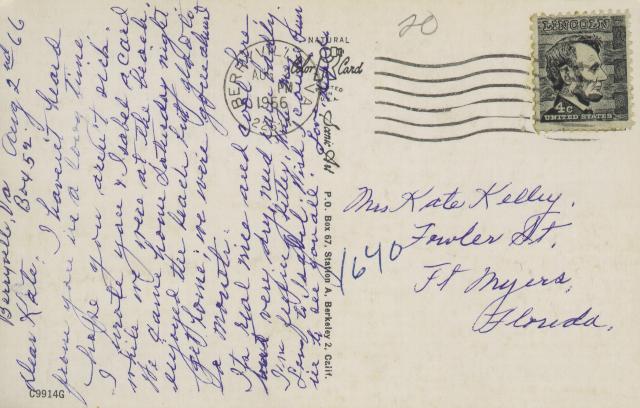 Berryville Va Aug 2nd 66
Box 452
Dear Kate. I haven't heard
from you in a long time
hope you aren't sick.
I wrote you & Isabel a card
while we were at the Beach.
We came home Saturday night
enjoyed the beach but glad to
get home, we were gone about
a month.
Its real nice and cool here
but very dry need rain badly.
I'm feeling better,
Love to Isabel. Wish I could
in to see you all.
NATURAL
Color Card
BERRYVILLE
AUG
PM
1966
Scenic Art
P. O. Box 67, Station A, Berkeley 2, Calif.
C9914G
20
LINCOLN
4c
UNITED STATES
Mrs Kate Kelley.
1640 Fowler St.
Ft Myers,
Florida.